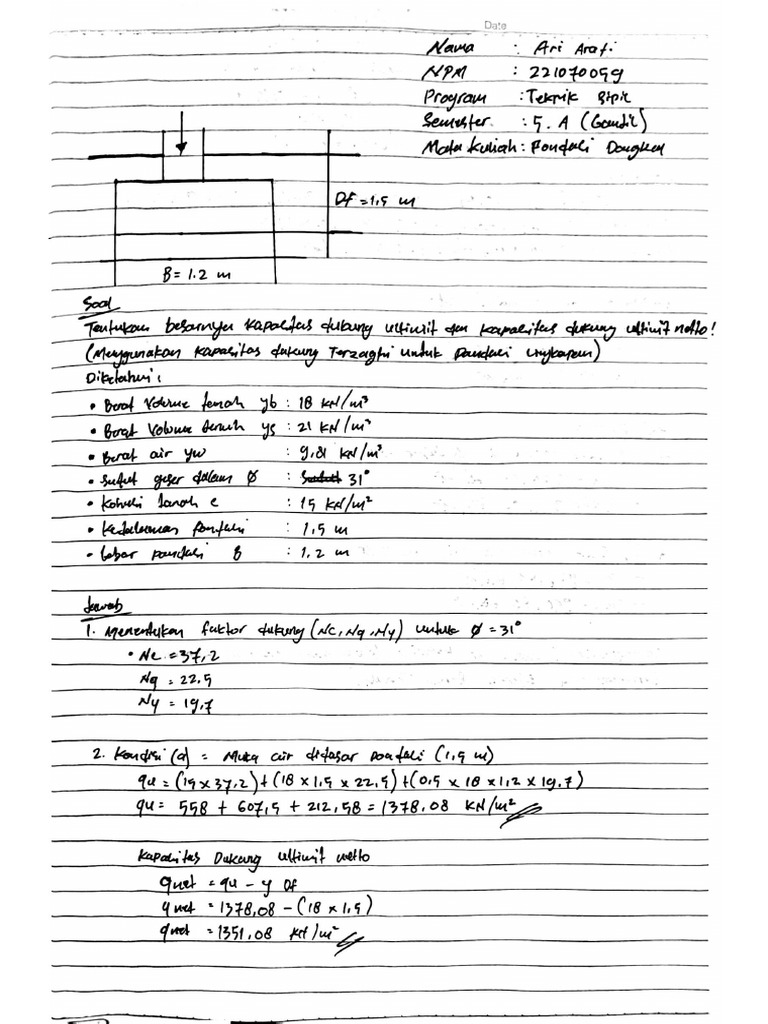 Date
Nama : Ari Arafi
NPM : 221070059
Program : Teknik Sipil
Semester : 5.A (Ganjil)
Mata Kuliah : Pondasi Dangkal
Df = 1,5 m
B = 1.2 m
Soal
Tentukan besarnya kapasitas dukung ultimit dan kapasitas dukung ultimit netto!
(Menggunakan kapasitas dukung Terzaghi untuk Pondasi lingkaran)
Diketahui :
• Berat Volume tanah γb : 18 kN/m³
• Berat Volume γs : 21 kN/m³
• Berat air γw : 9,81 kN/m³
• Sudut geser dalam Ø : 31°
• Kohesi tanah c : 15 kN/m²
• Kedalaman pondasi : 1,5 m
• Lebar pondasi B : 1.2 m
Jawab
1. Menentukan faktor dukung (Nc, Nq, Nγ) untuk Ø = 31°
• Nc = 37,2
Nq = 22,5
Nγ = 19,7
2. Kondisi (a) = Muka air didasar pondasi (1,5 m)
qu = (15 x 37,2) + (18 x 1,5 x 22,5) + (0,5 x 18 x 1,2 x 19,7)
qu = 558 + 607,5 + 212,58 = 1378,08 KN/m²
Kapasitas Dukung ultimit netto
qnet = qu - γ Df
qnet = 1378,08 - (18 x 1,5)
qnet = 1351,08 KN/m²